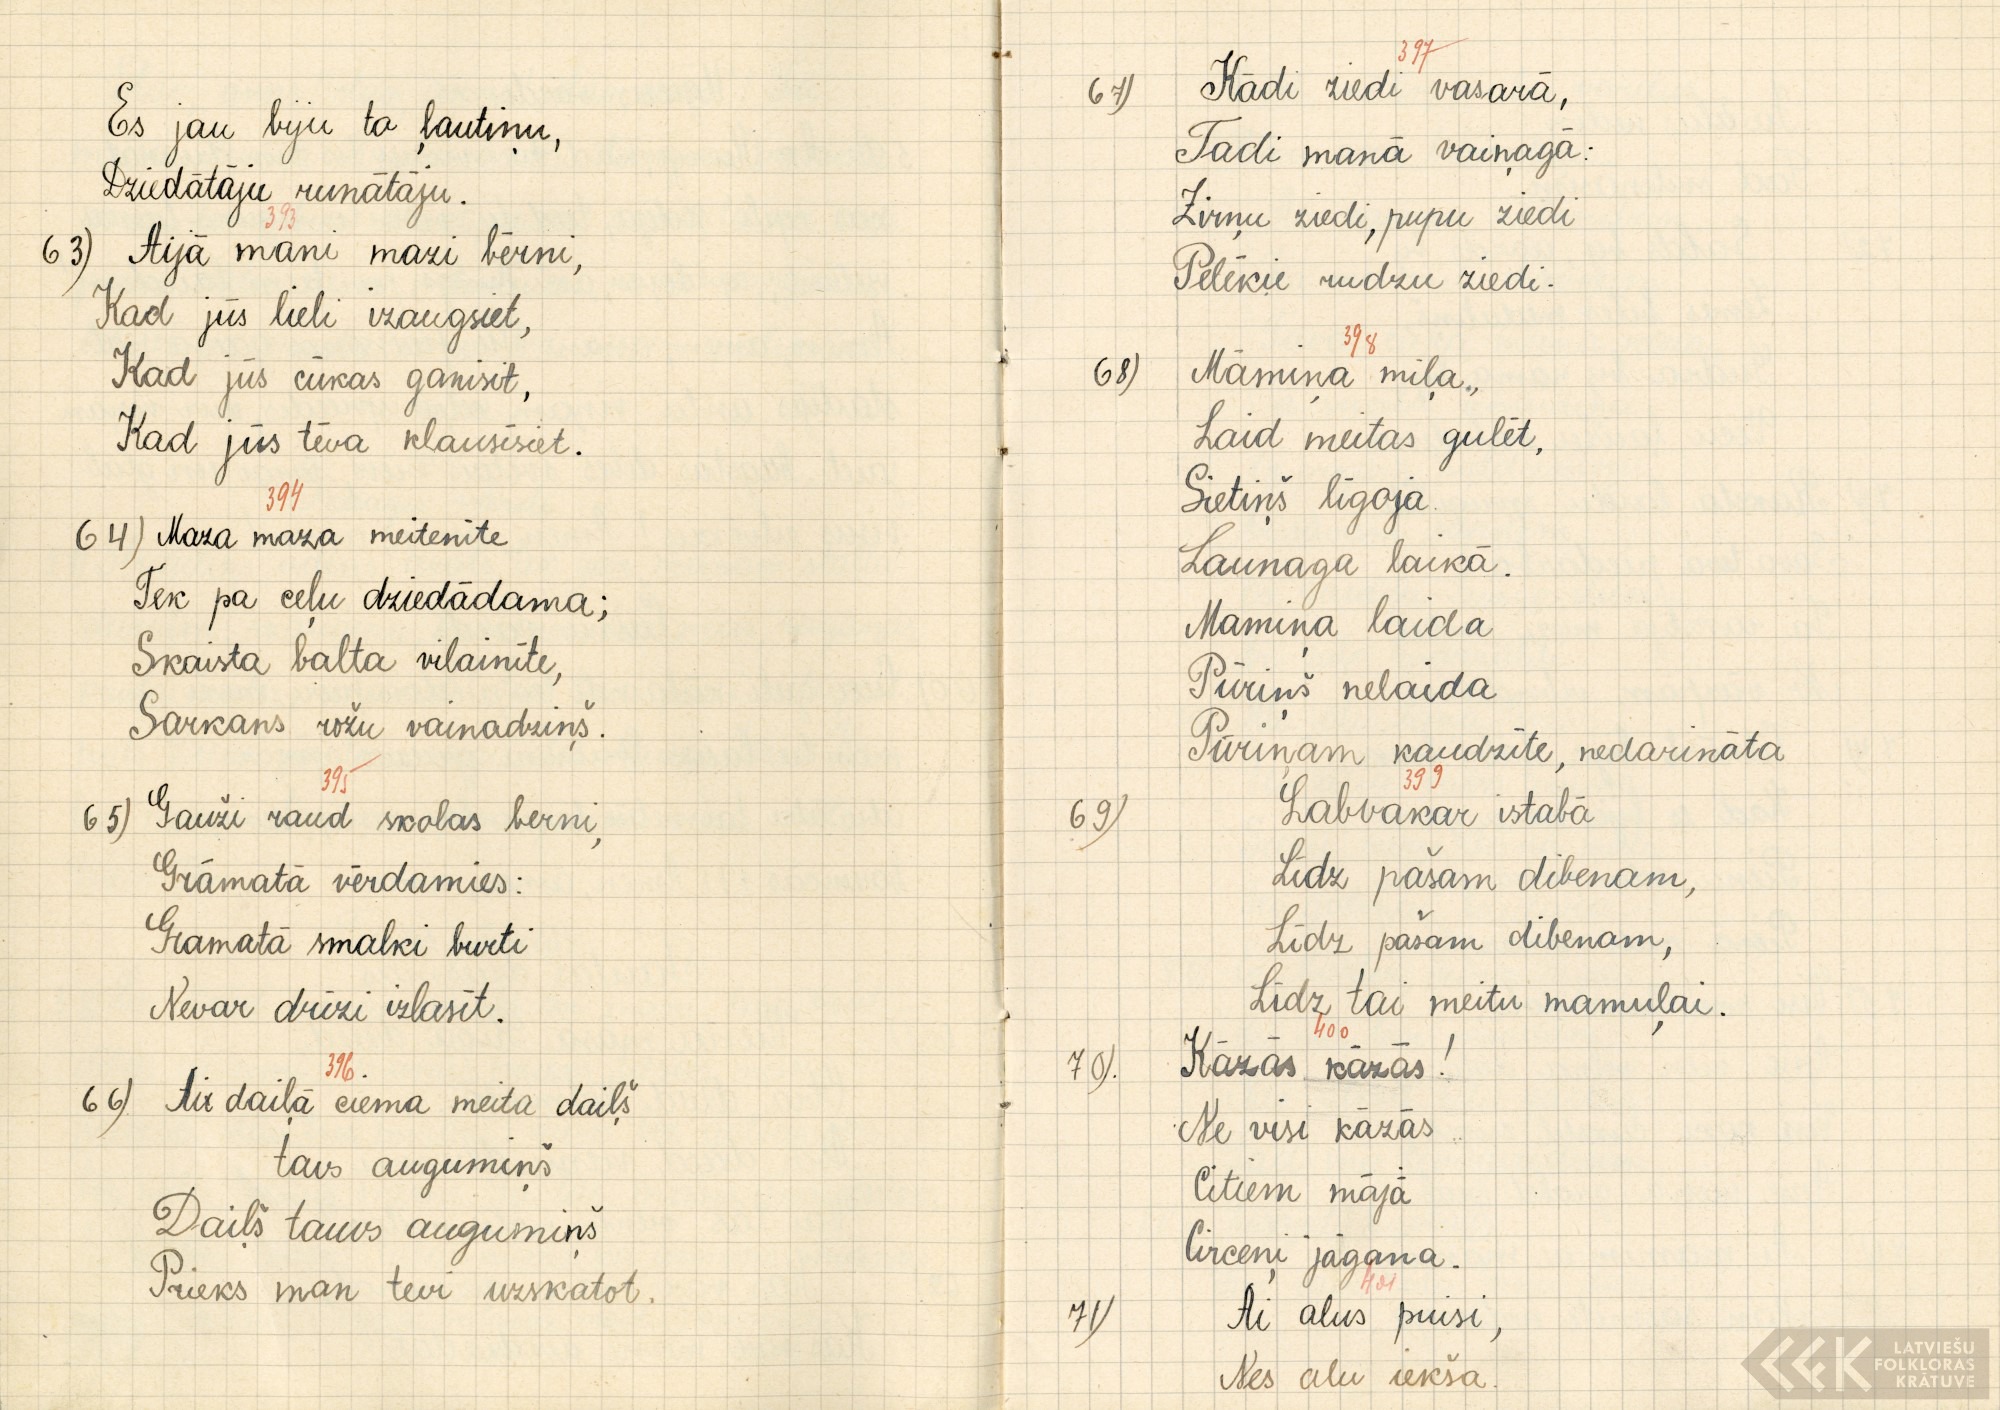 Es jau biju to ļautiņu,
Dziedātāju runātāju.
393
63) Aijā mani mazi bērni,
Kad jūs lieli izaugsiet,
Kad jūs cūkas ganisit,
Kad jūs tēva klausīsiet.
394
64) Maza maza meitenīte
Tek pa ceļu dziedādama;
Skaista balta vilainīte,
Sarkans rožu vainadziņš.
395
65) Gauži raud skolas berni,
Grāmatā vērdamies:
Gramatā smalki burti
Nevar drīzi izlasīt.
396.
66) Aiz daiļā ciema meita daiļš
tavs augumiņš
Daiļš tauvs augumiņš
Prieks man tevi uzskatot.
397
67) Kādi ziedi vasarā,
Tadi manā vaiņagā:
Zirņu ziedi, pupu ziedi
Pelēkie rudzu ziedi.
398
68) Māmiņa miļa,,
Laid meitas gulēt,
Sietiņš līgoja.
Launaga laikā.
Mamiņa laida
Pūriņš nelaida
Pūriņam kaudzīte, nedarināta
399
69) Labvakar istabā
Līdz pašam dibenam,
Līdz pašam dibenam,
Līdz tai meitu mamuļai.
400
70). Kāzās kāzās!
Ne visi kāzās
Citiem mājā
Circeņi jāgana.
401
71) Ai alus puisi,
Nes alu iekša.
LATVIEŠU
FOLKLORAS
KRĀTUVE